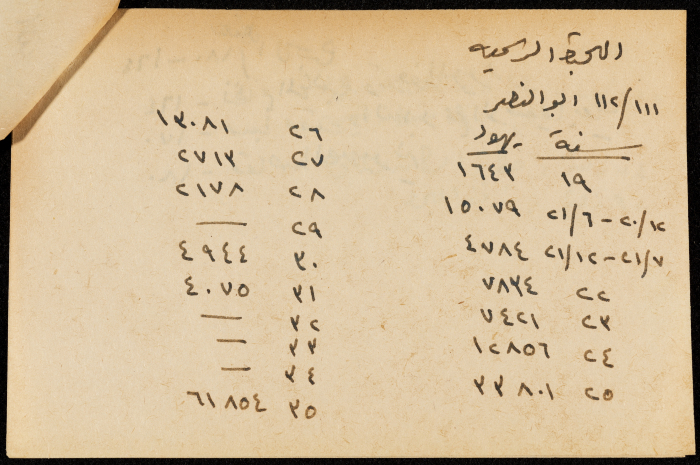 الهجرة الرسميه
١١١/١١٢ ابو النصر
سنة يهود
١٩ ١٦٤٣
٢٠/١٢ – ٢١/٦ ١٥٠٧٩
٢١/٧ – ٢١/١٢ ٤٧٨٤
٢٢ ٧٨٣٤
٢٣ ٧٤٢١
٢٤ ١٢٨٥٦
٢٥ ٣٣٨٠١
٢٦ ١٣٠٨١
٢٧ ٢٧١٣
٢٨ ٢١٧٨
٢٩ —
٣٠ ٤٩٤٤
٣١ ٤٠٧٥
٣٢ —
٣٣ —
٣٤ —
٣٥ ٦١٨٥٤